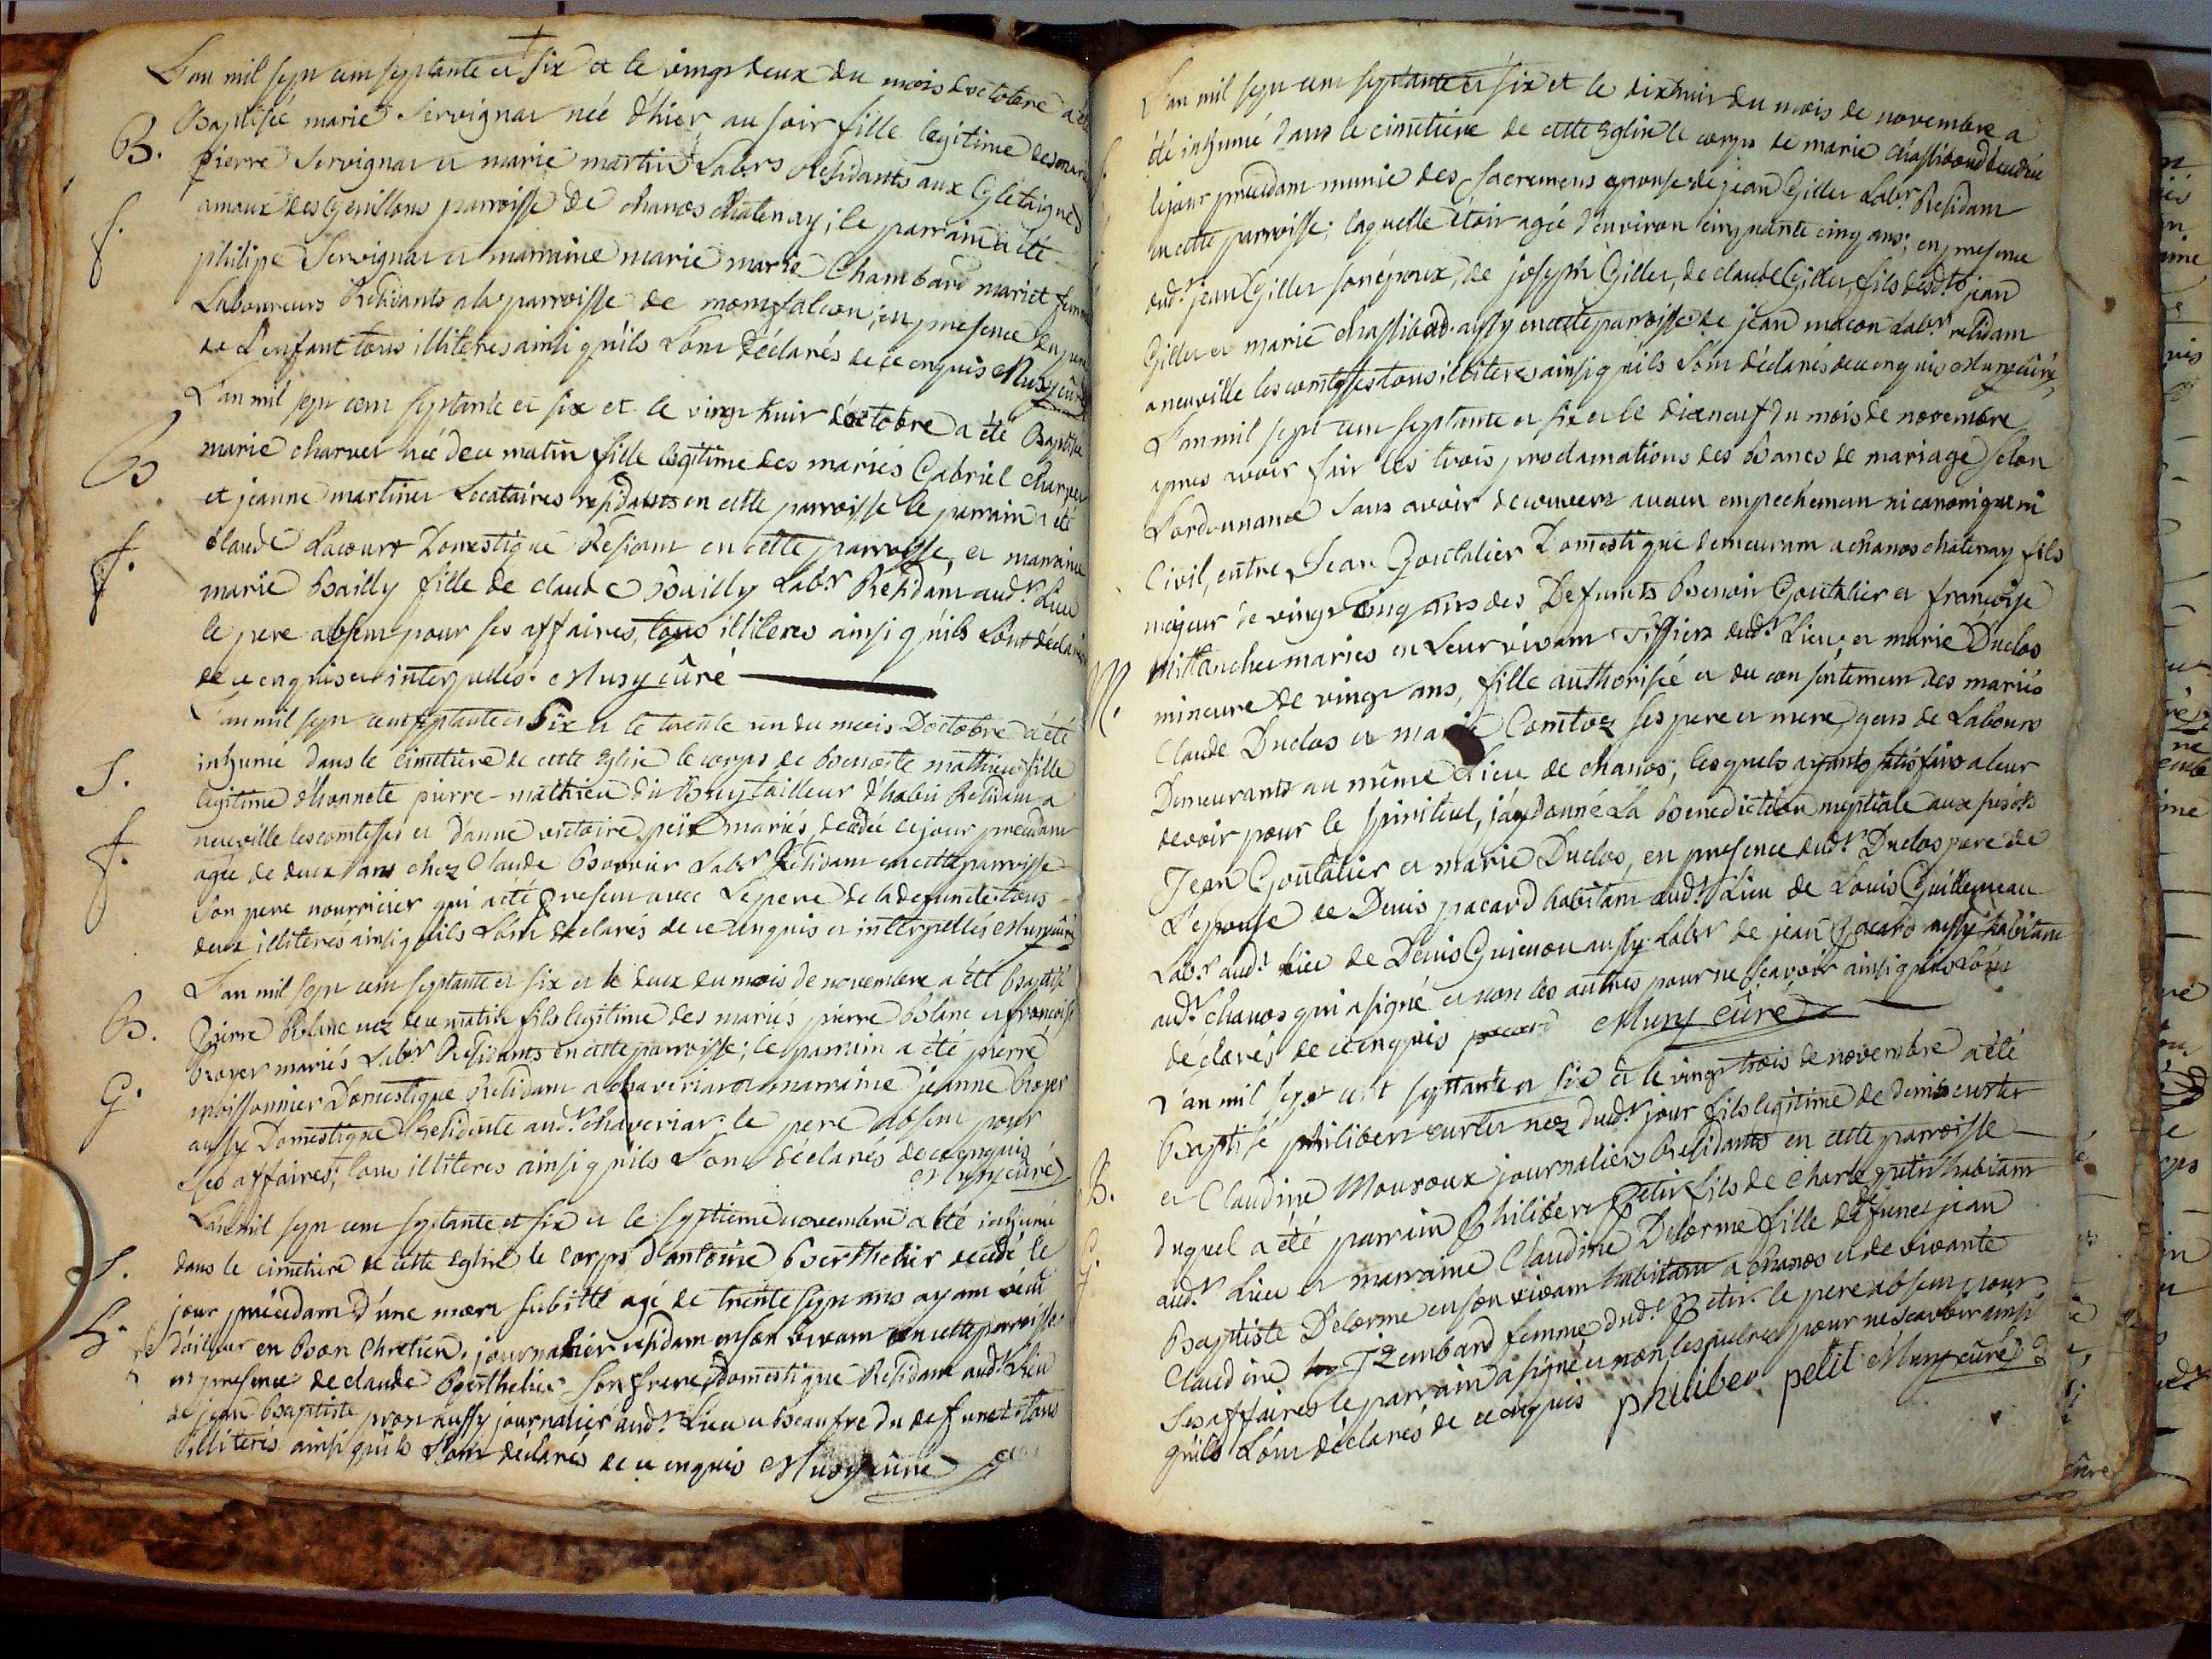 L'an mil sept cent septante et six et le vingt deux du mois d'octobre a été
B. Baptisée marie Servignat née d'hier au soir fille legitime des mariés
pierre Servignat et marie martin Labrs Residants aux
f. amaux des Genillons parroisse de chanos chatenay; le parrain a été
philipe Servignat et marraine marie marie Chambard mari et femme
Laboureurs Residants a la parroisse de montfalcon, en presence du pere
de L'enfant tous illiteres ainsi qu'ils L'ont déclarés de ce enquis Musy curé
L'an mil sept cent septante et six et le vingt huit d'octobre a été Baptisée
B marie charvet née de ce matin fille legitime des mariés Gabriel charvet
et jeanne martinet Locataires residants en cette parroisse le parrain a été
f. claude Lacour Domestique Residant en cette parroisse, et marraine
marie Bailly fille de claude Bailly Labr Residant audt Lieu
le pere absent pour ses affaires, tous illiteres ainsi qu'ils L'ont déclarés
de ce enquis et interpellés. Musy curé
L'an mil sept cent septante et Six et le trente un du mois D'octobre a été
S. inhumé dans le cimetiere de cette Eglise le corps de Benoite mathieu fille
legitime d'honnete pierre mathieu du tailleur d'habit Residant a
neuville les comtesses et d'anne victoire mariés, decedée le jour precedant
f. agée de deux ans chez Claude Bouvier Labr Residant en cette parroisse
son pere nourricier qui a eté present avec Le pere de la defuncte tous
deux illiterés ainsi qu'ils L'ont declarés de ce enquis et interpellés Musy curé
L'an mil sept cent septante et six et le deux du mois de novembre a été baptisé
B. Pierre Blanc nez de ce matin fils legitime des mariés pierre Blanc et françoise
broyer mariés Labrs Residants en cette parroisse; le parrain a été pierre
G. moissonnier Domestique Residant a chaveriat et marraine jeanne broyer
aussy Domestique Residente audt chaveriat le pere absent pour
ses affaires; tous illiteres ainsi qu'ils L'ont déclarés de ce enquis
Musy curé
L'an mil sept cent septante et six et le septieme novembre a été inhumé
S. dans le cimetiere de cette Eglise le corps d'antoine Berthelier decedé le
jour precedant d'une mort subitte agé de trente sept ans ayant vecu
G. d'ailleur en Bon Chretien. journalier residant en son vivant en cette parroisse.
en presence de claude Berthelier son frere, domestique Residant audt Lieu
de jean Baptiste aussy journalier audt Lieu et beaufre du defunct tous
illiterés ainsi qu'ils L'ont déclarés de ce enquis Musy curé
L'an mil sept cent septante et six et le dixhuit du mois de novembre a
été inhumé dans le cimetiere de cette Eglise le corps de marie chassiboud decedée
le jour precedant munie des Sacremens epouse de jean Gillet Labr Residant
en cette parroisse; laquelle étoit agée d'environ cinquante cinq ans; en presence
dudt jean Gillet son époux, de joseph Gillet, de claude Gillet, fils desdts jean
Gillet et marie chassiboud aussy en cette parroisse de jean macon Labr residant
a neuville les comtesses tous illiteres ainsi qu'ils L'ont déclarés de ce enquis Musy curé
L'an mil sept cent septante et six et le dixneuf du mois de novembre
apres avoir fait les trois proclamations des Bancs de mariage selon
L'ordonnance sans avoir decouvert aucun empechement ni canonique ni
Civil, entre Jean Goutalier Domestique demeurant a chanos chatenay fils
majeur de vingt cinq ans des Defunts Benoit Goutalier et françoise
Millanchet mariés en Leur vivant dudt Lieu, et marie Duclos
M. mineure de vingt ans, fille authorisée et du consentement des mariés
Claude Duclos et marie Comtoz ses pere et mere, gens de Labours
Demeurants au même Lieu de chanos; lesquels ayants satisfaits a leur
devoir pour le spirituel, j'ay donné La Benediction nuptiale aux susdts
Jean Goutalier et marie Duclos, en presence dudt Duclos pere de
L'epouse de Denis pacard habitant audt Lieu de Louis Guillemeau
Labr audt Lieu de Denis Guienon aussy Labr de jean pacard aussy habitant
audt chanos qui a signé et non les autres pour ne sçavoir ainsi qu'ils L'ont
déclarés de ce enquis pacard Musy curé
L'an mil sept cent septtante et six et le vingt trois de novembre a été
Baptisé philibert curtet nez dudt jour fils legitime de denis curtet
B. et Claudine Mouroux journaliers Residants en cette parroisse
G. duquel a été parrain Philibert Petit fils de charle petit habitant
audt Lieu et marraine Claudine Delorme fille de defunct jean
Baptiste Delorme en son vivant habitant a chanos et de vivante
Claudine femme dudt Petit. le pere absent pour
Ses affaires le parrain a signé et non les autres pour ne scavoir ainsi
qu'ils L'ont déclarés de ce enquis philiber petit Musy curé